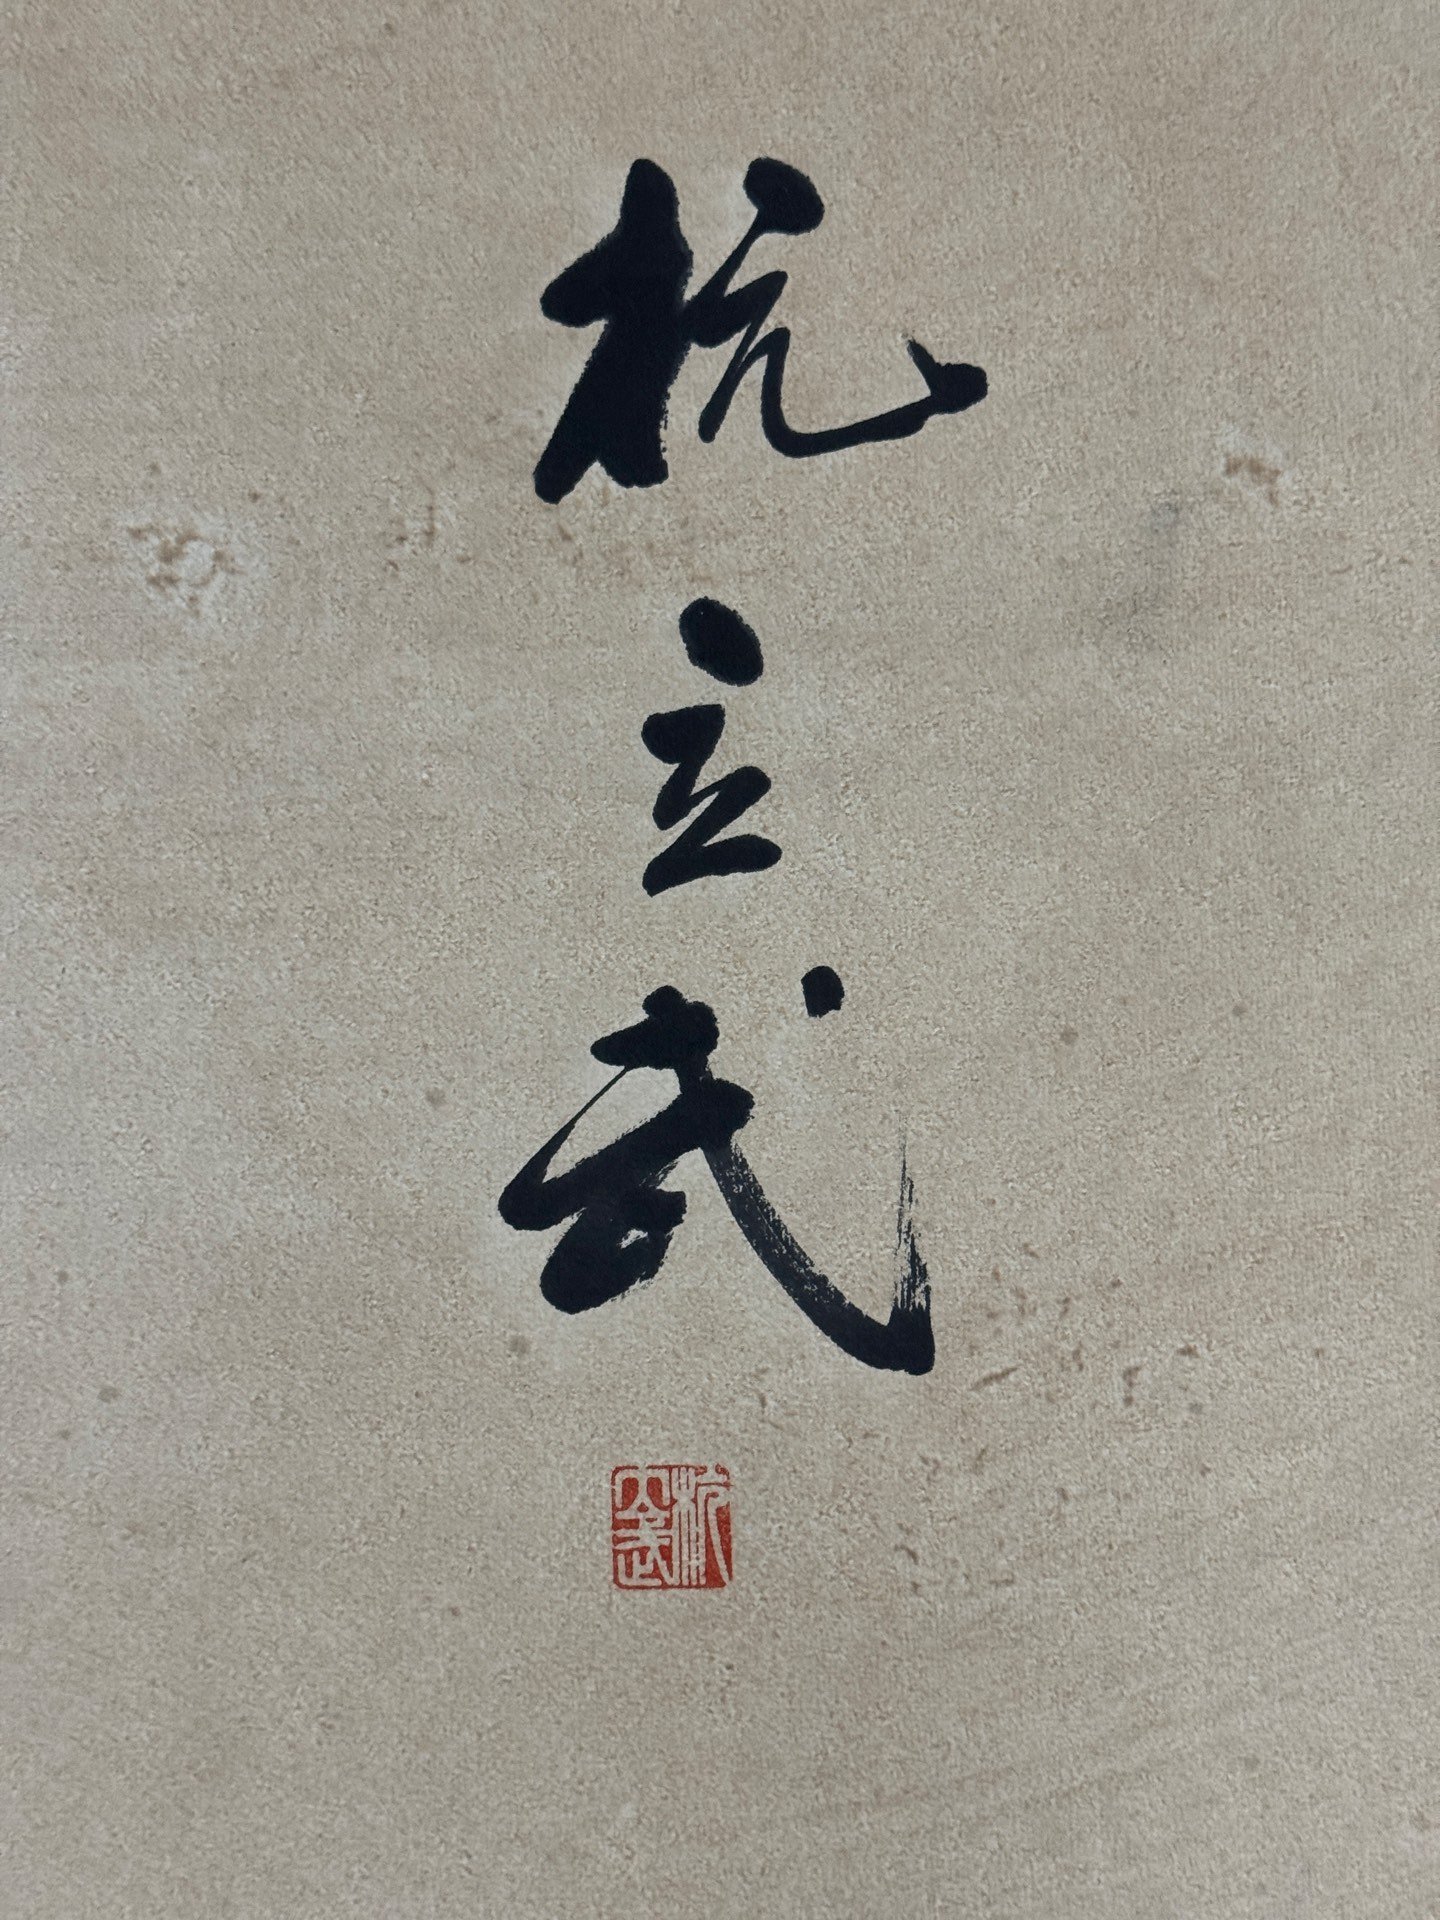 杭立武
杭立武